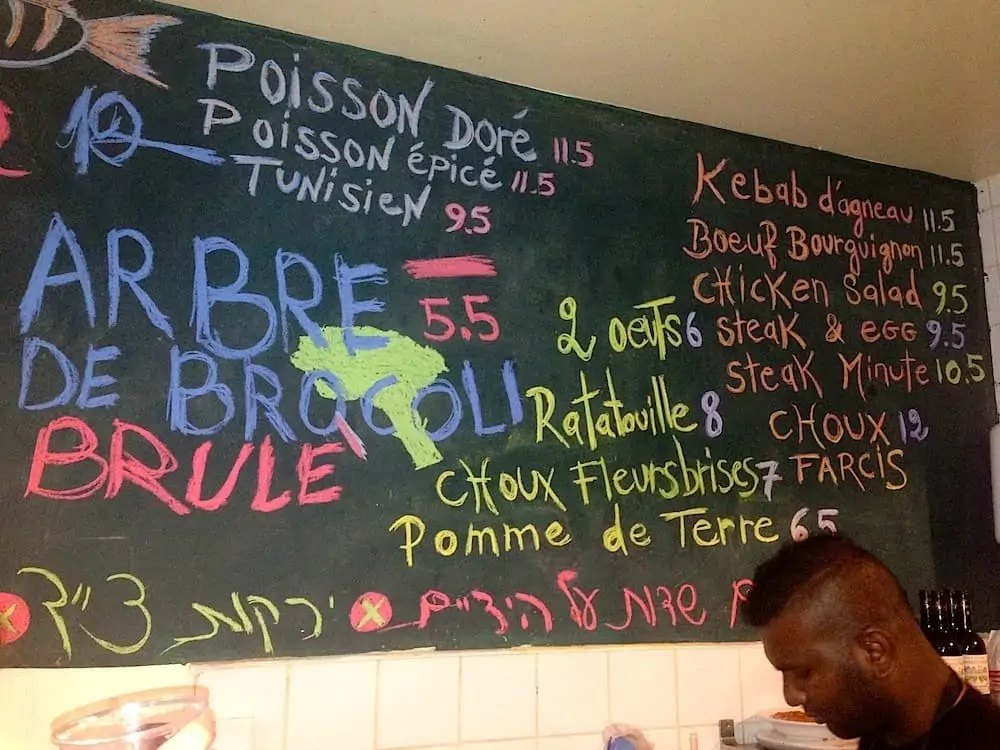 POISSON DORÉ 11.5
POISSON épicé 11.5
TUNISIEN 9.5
ARBRE 5.5
DE BROCOLI
BRULÉ
Kebab d'agneau 11.5
BOEUF BOURGUIGNON 11.5
CHICKEN Salad 9.5
2 oeufs 6
STEAK & EGG 9.5
STEAK MINUTE 10.5
Ratatouille 8
CHOUX 12
FARCIS
CHOUX Fleursbrises 7
Pomme de Terre 6.5
שדות על הידיים
ירקות